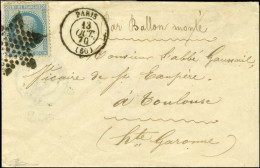 PARIS
13
OCT
70
(60)
Par Ballon monté
Monsieur l'abbé
Vicaire de St
à Toulouse
(Hte Garonne)